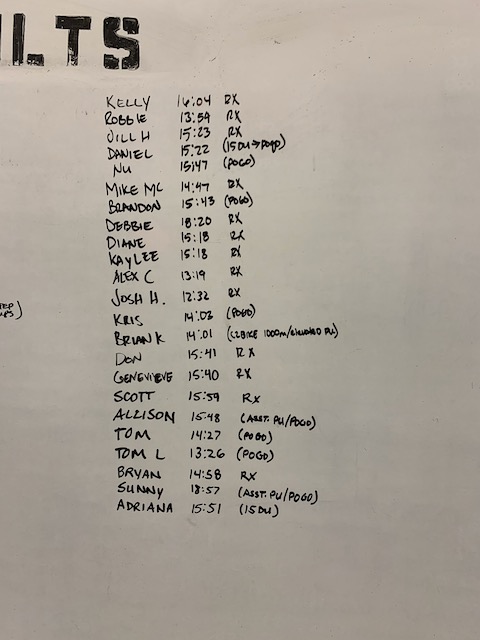 ULTS
KELLY 16:04 RX
ROBBIE 13:59 RX
JILL H 15:23 RX
DANIEL 15:22 (15 DU→POGO)
NU 15:47 (POGO)
MIKE MC 14:47 RX
BRANDON 15:43 (POGO)
DEBBIE 18:20 RX
DIANE 15:18 RX
KAYLEE 15:18 RX
ALEX C 13:19 RX
JOSH H. 12:32 RX
KRIS 14:03 (POGO)
BRIAN K 14:01 (C2BIKE 1000m/ PU)
DON 15:41 RX
GENEVIEVE 15:40 RX
SCOTT 15:59 RX
ALLISON 15:48 (ASST. PU/POGO)
TOM 14:27 (POGO)
TOM L 13:26 (POGO)
BRYAN 14:58 RX
SUNNY 18:57 (ASST. PU/POGO)
ADRIANA 15:51 (15 DU)